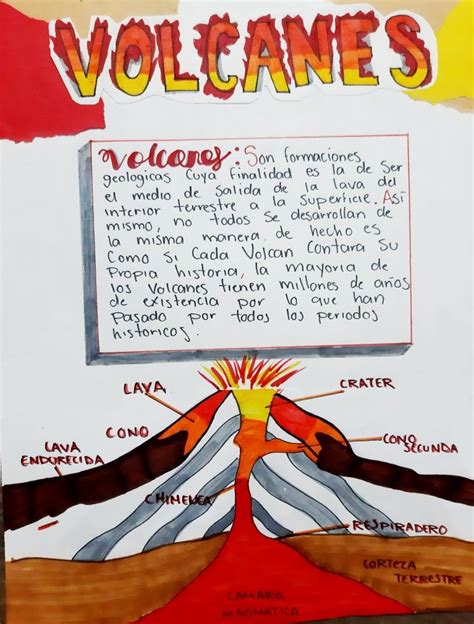 VOLCANES
Volcanes: Son formaciones
geologicas cuya finalidad es la de ser
el medio de salida de la lava del
interior terrestre a la superficie. Así
mismo, no todos se desarrollan de
la misma manera de hecho es
como si cada volcan contara su
propia historia, la mayoria de
los volcanes tienen millones de años
de existencia por lo que han
pasado por todos los periodos
historicos.
LAVA
CRATER
CONO
LAVA
ENDURECIDA
CONO
SECUNDA
CHIMENEA
RESPIRADERO
CORTEZA
TERRESTRE
CAMARA
MAGMATICA